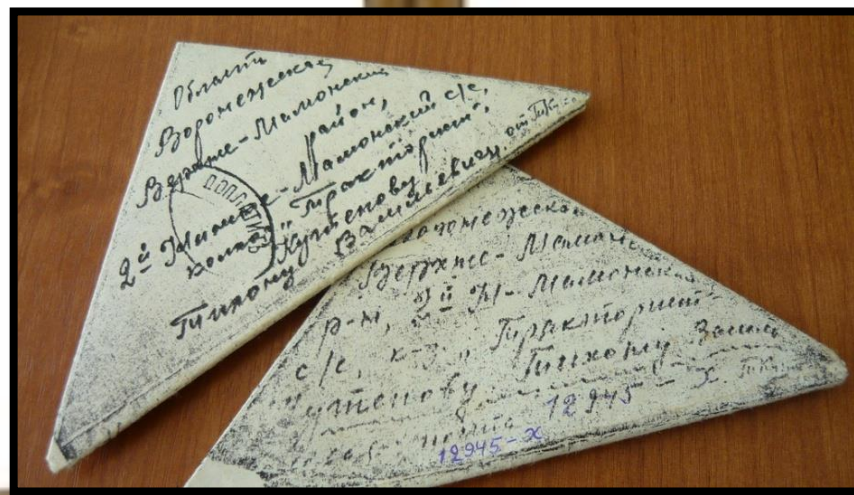 Область
Воронежская
Верхне-Мамонский
район,
2й Нижне-Мамонский с/с,
колхоз "Тракторист",
Кутепову
Тихону Васильевичу
от
ДОПЛАТИТЬ
Верхне-Мамонский
р-н, 2й Н-Мамонский
с/с, к-з "Тракторист"
Кутепову Тихону
12945-х
12945-х